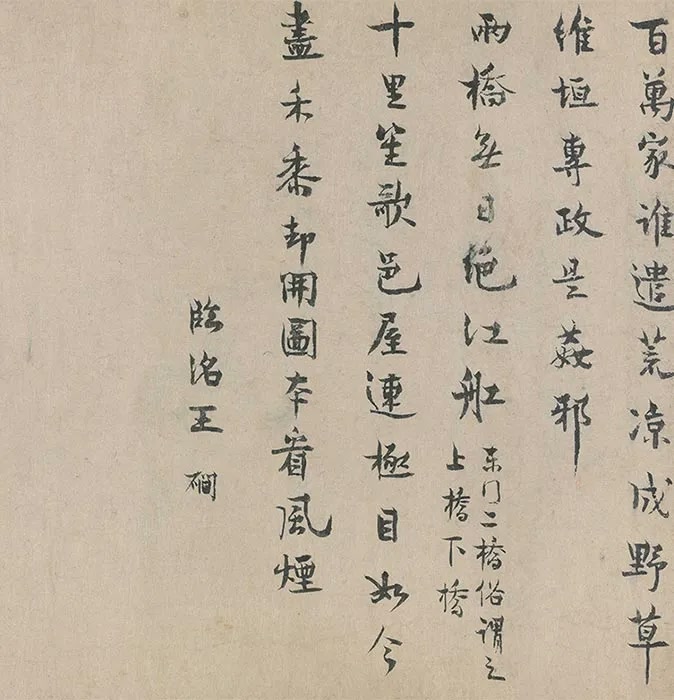 百萬家誰遣荒凉成野草
維垣專政是姦邪
兩橋無日絕江舡
東門二橋俗謂之
上橋下橋
十里笙歌邑屋連極目如今
盡禾黍却開圖本看風煙
臨洺王磵